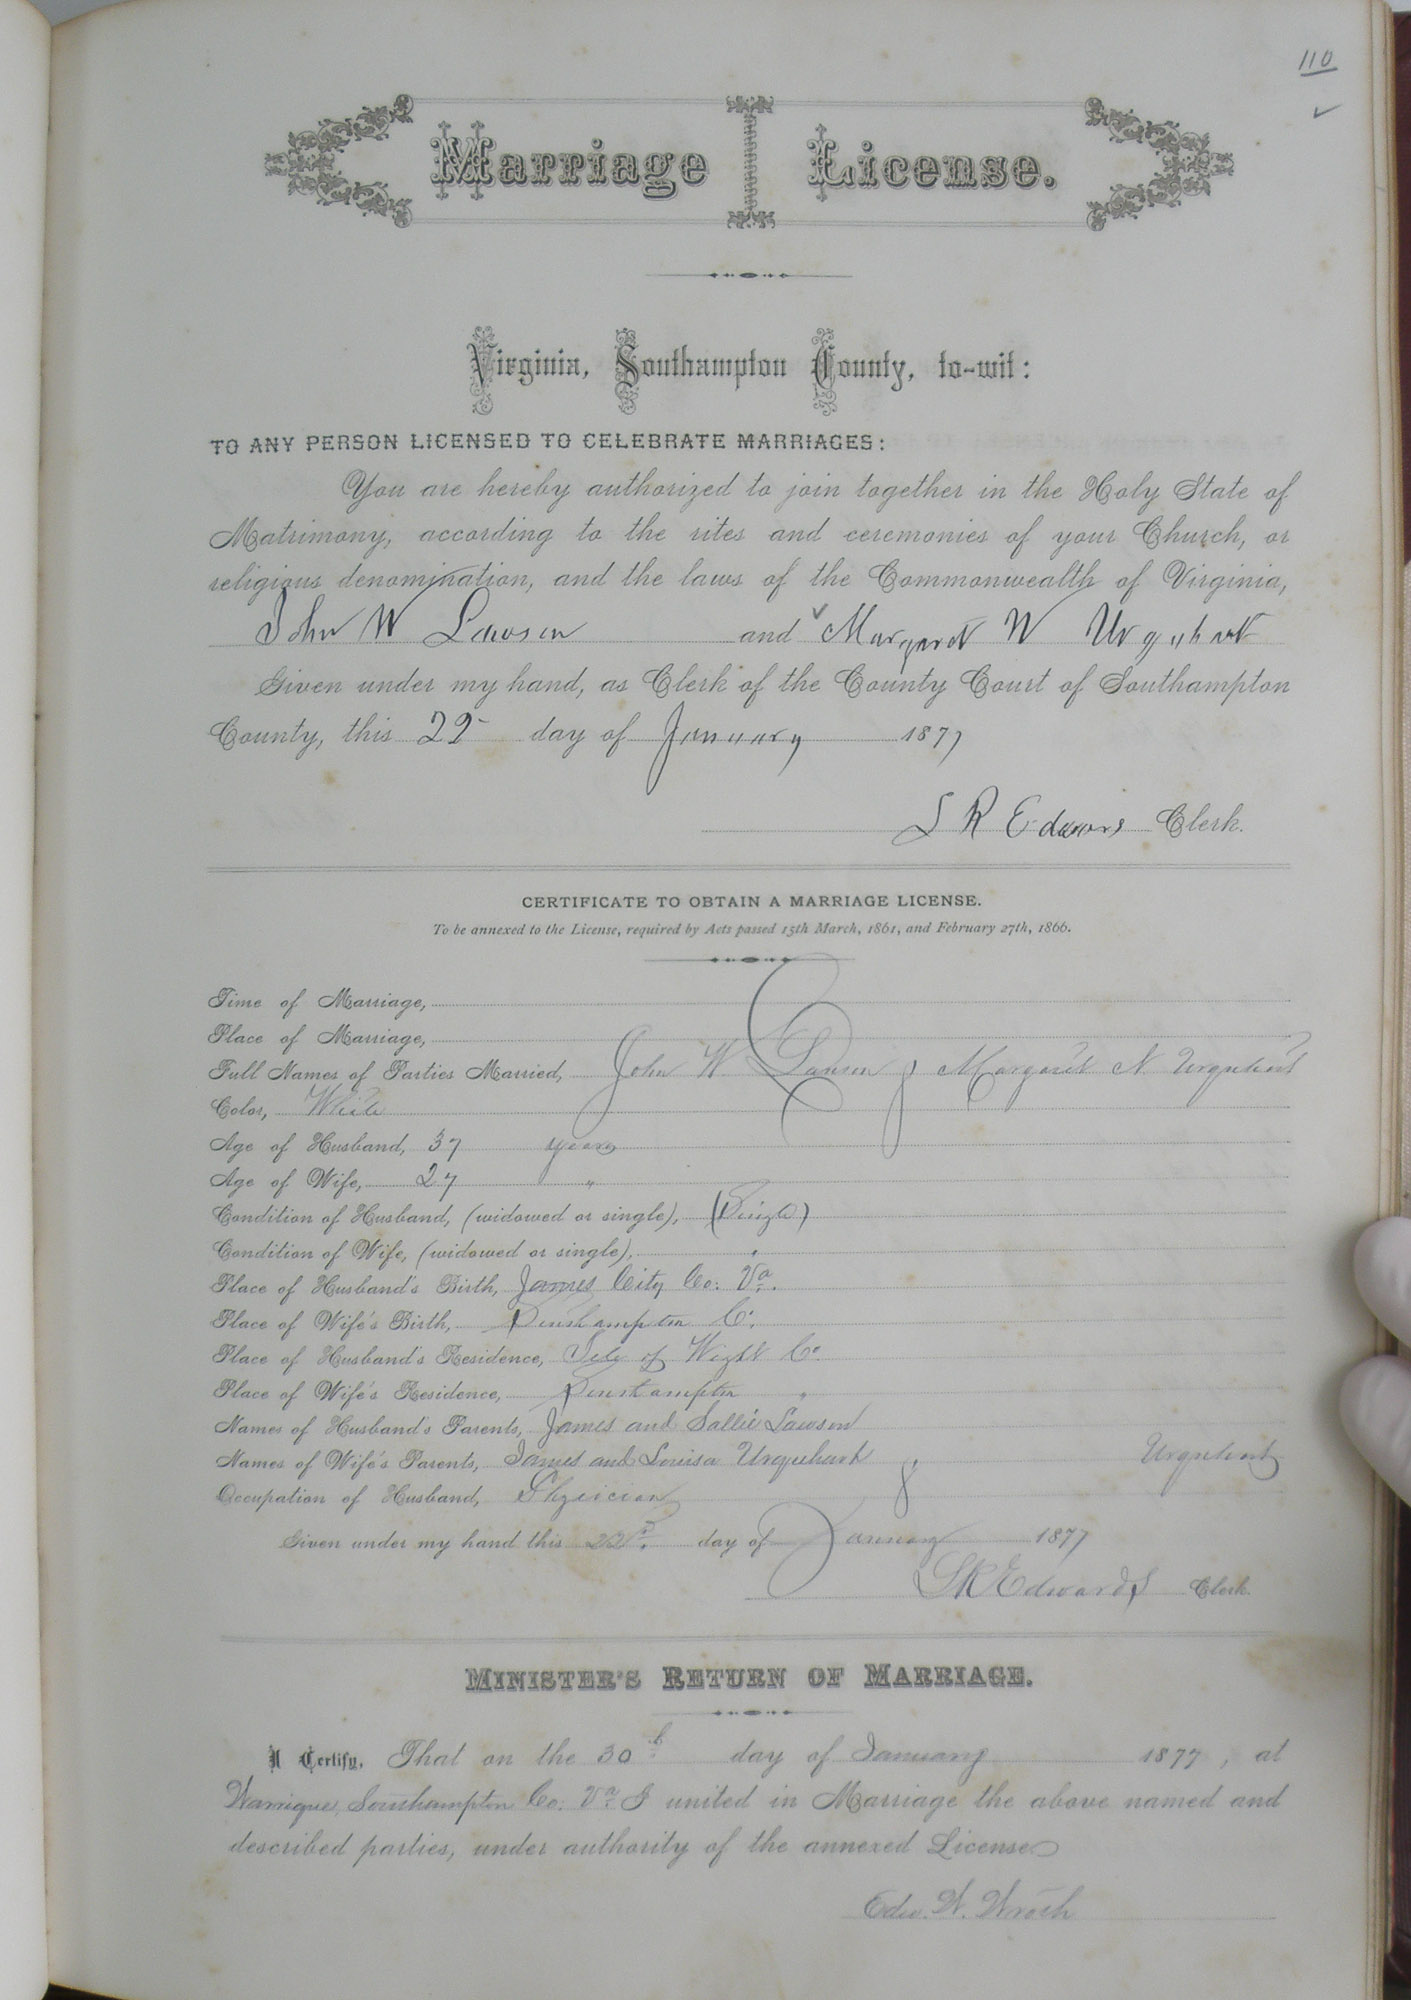 110
Marriage License.
Virginia, Southampton County, to-wit:
TO ANY PERSON LICENSED TO CELEBRATE MARRIAGES:
You are hereby authorized to join together in the Holy State of
Matrimony, according to the rites and ceremonies of your Church, or
religious denomination, and the laws of the Commonwealth of Virginia,
John W Lawson and Margaret W Urquhart
Given under my hand, as Clerk of the County Court of Southampton
County, this 29 day of January 1877
L R Edwards Clerk.
CERTIFICATE TO OBTAIN A MARRIAGE LICENSE.
To be annexed to the License, required by Acts passed 15th March, 1861, and February 27th, 1866.
Time of Marriage,
Place of Marriage,
Full Names of Parties Married, John W. Lawson & Margaret N. Urquhart
Color, White
Age of Husband, 37 years
Age of Wife, 27 "
Condition of Husband, (widowed or single), (Single)
Condition of Wife, (widowed or single), "
Place of Husband's Birth, James City Co: Va.
Place of Wife's Birth, Southampton Co.
Place of Husband's Residence, Isle of Wight Co.
Place of Wife's Residence, Southampton "
Names of Husband's Parents, James and Sallie Lawson
Names of Wife's Parents, James and Louisa Urquhart & Urquhart
Occupation of Husband, Physician
Given under my hand this day of January 1877
L R Edwards Clerk.
MINISTER'S RETURN OF MARRIAGE.
I Certify, That on the 30th day of January 1877, at
Warrique, Southampton Co: Va I united in Marriage the above named and
described parties, under authority of the annexed License
Edw. W. Wroth